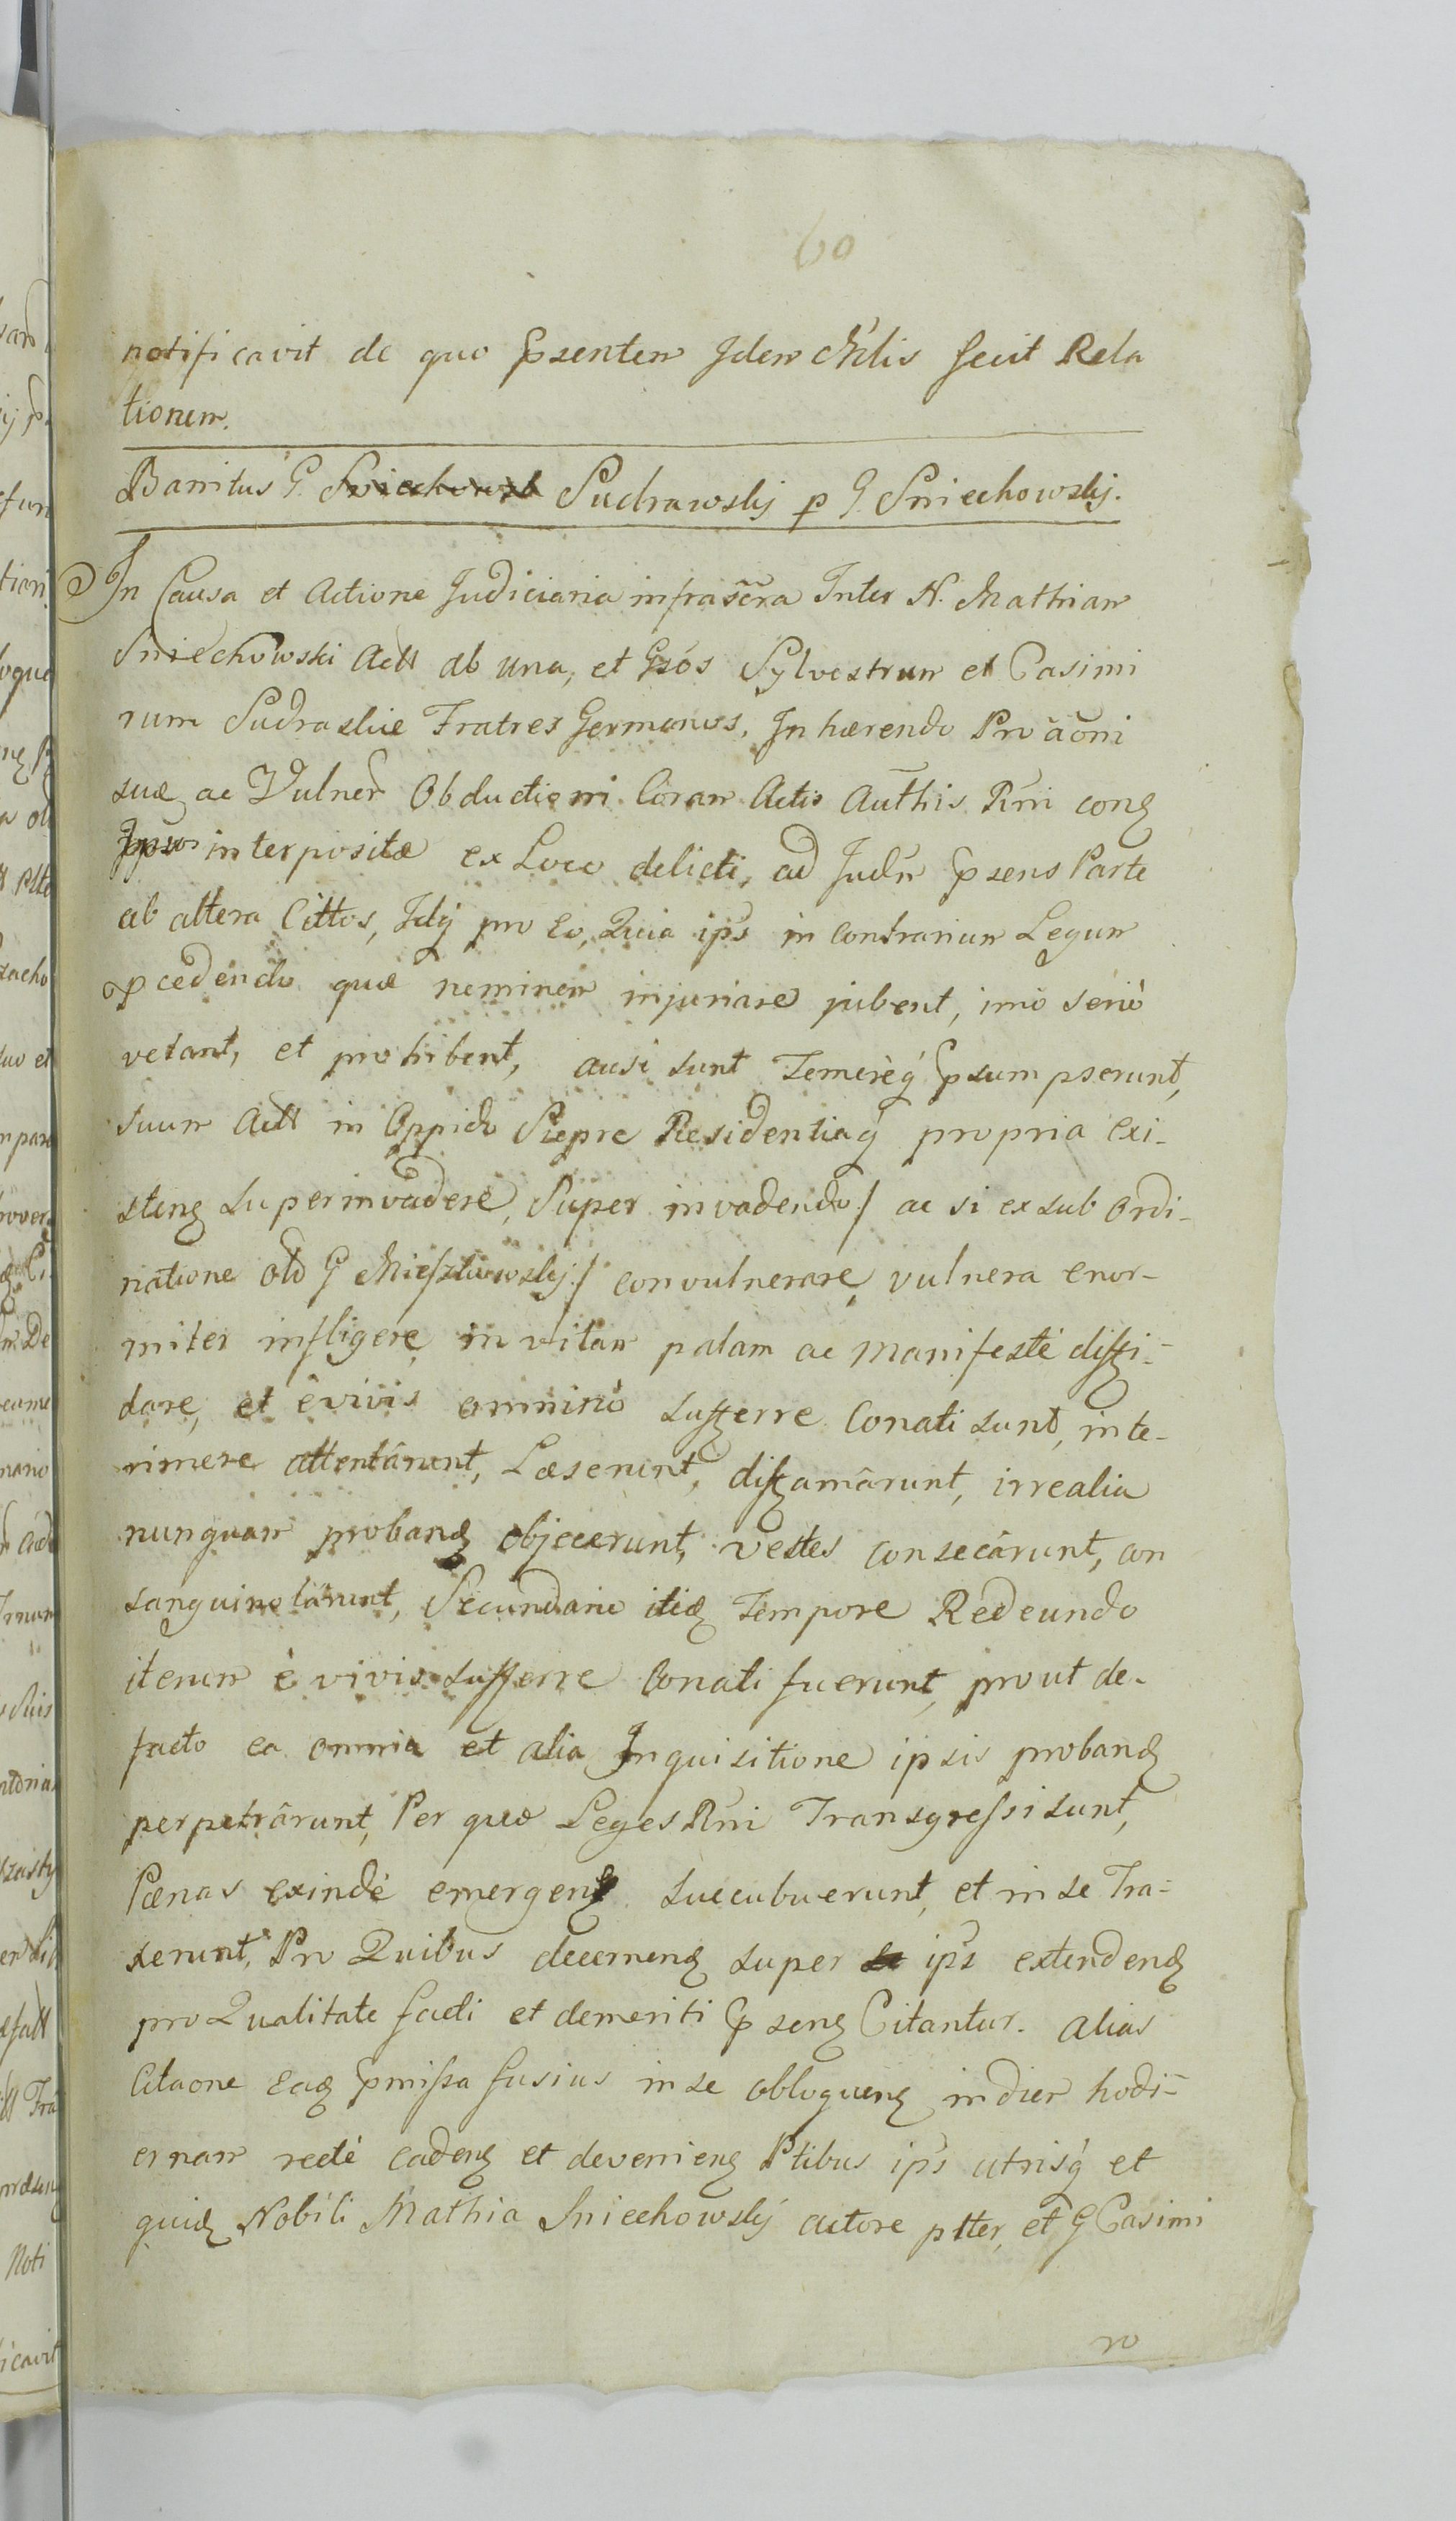 60
notificavit de quo Praesentem Idem Mlis fecit Rela
tionem.
Banitus G. Sudrawskij p G. Sniechowskij.
In Causa et Actione Judiciaria infrascra Inter N. Mathiam
Sniechowski Actt ab una, et Gsos Sylvestrum et Casimi
rum Sudraskie Fratres Germanos, In haerendo Proaoni
suae ac Vulner Obductioni Coram Actis Authis Rni conq
Ipsos interpositae ex Loco delicti, ad Judm psens Parte
ab altera Cittos, Idq pro Eo, Quia ips in Contrarium Legum
pcedendo quae neminem injuriare jubent, imo serio
vetant, et prohibent, ausi sunt Temereq psumpserunt,
suum Actt in Oppido Siepre Residentiaq propria exi-
stenq superinvadere, Super invadendo / ac si ex sub ordi-
natione Old G / convulnerare, vulnera enor-
miter infligere, in vitam palam ac manifesté diffi-
dare, et è vivis omninò sufferre Conati sunt, inte-
rimere attentârunt, Laeserunt, diffamârunt, irrealia
nunquam probanq objecerunt, vestes consecârunt, con
sanguinolârunt, Secundario itidq Tempore Redeundo
iterum è vivis sufferre Conati fuerunt, prout de-
facto ea omnia et alia Inquisitione ipsis probanq
perpetrârunt, Per quae Leges Rni Transgressi sunt,
Paenas exindè emergenq succubuerunt, et in se Tra-
xerunt, Pro Quibus decernenq super ips extendenq
pro Qualitate facti et demeriti psenq Citantur. Alias
Citaone eadq pmissa fusius in se obloquenq in diem hodi-
ernam recté cadenq et devenienq Ptibus ips utrisq et
quidq Nobili Mathia Sniechowskij actore ptter, et G Casimi
ro